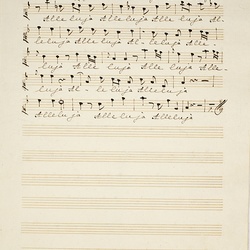 Alleluja Alleluja Alleluja Al-
leluja Alleluja Al- leluja Alle
luja Alle luja Alleluja Alle-
luja Al- le luja Alleluja
Alleluja Alleluja Alleluja